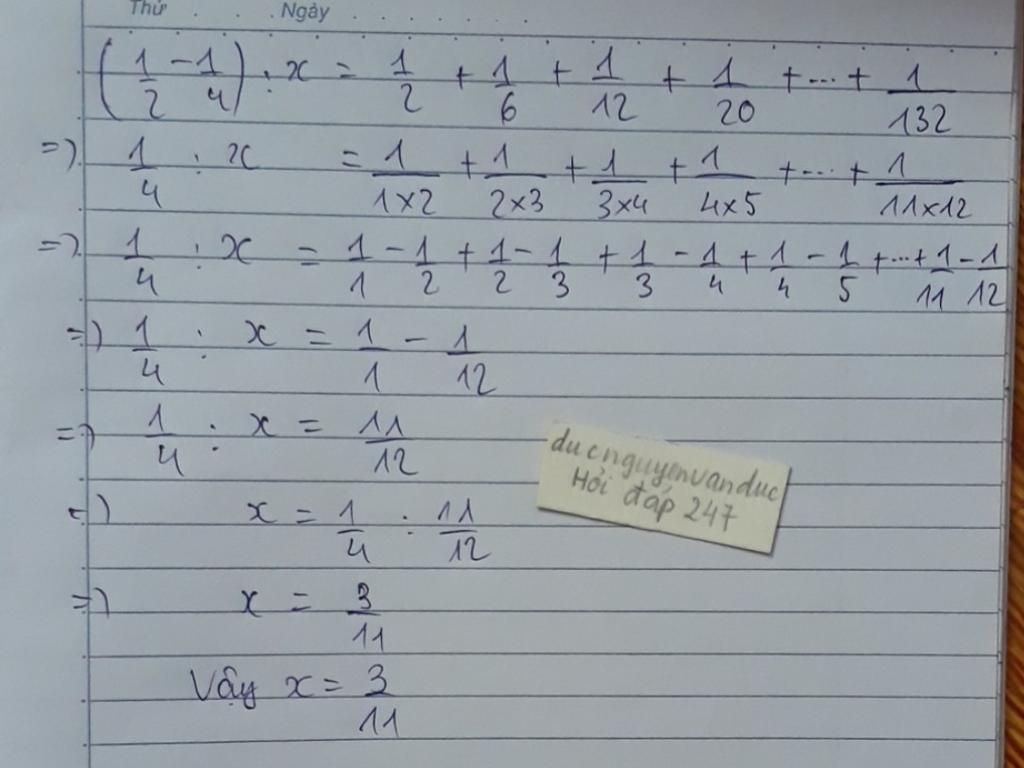 Thứ . . . Ngày . . . . . . .
(1/2 - 1/4) : x = 1/2 + 1/6 + 1/12 + 1/20 + ... + 1/132
=> 1/4 : x = 1/1x2 + 1/2x3 + 1/3x4 + 1/4x5 + ... + 1/11x12
=> 1/4 : x = 1/1 - 1/2 + 1/2 - 1/3 + 1/3 - 1/4 + 1/4 - 1/5 + ... + 1/11 - 1/12
=> 1/4 : x = 1/1 - 1/12
=> 1/4 : x = 11/12
=> x = 1/4 : 11/12
=> x = 3/11
Vậy x = 3/11
ducnguyenvanduc
Hỏi đáp 247